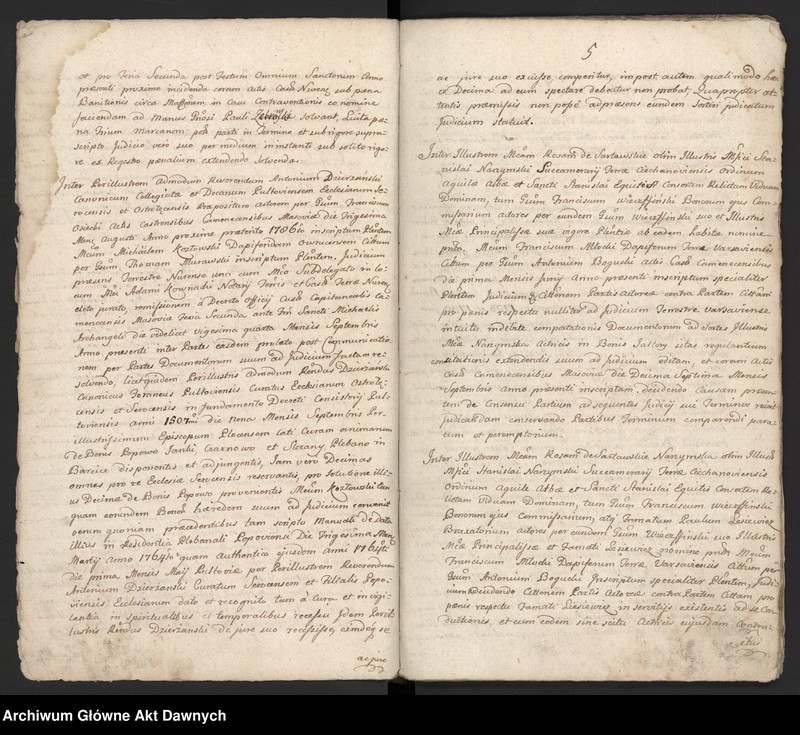 et pro Feria Secunda post Festum Omnium Sanctorum Anno
præsenti proxime incidenda coram actis Castr Nurens sub pœna
Banitionis circa in Casu Contraventionis eo nomine
faciendam ad Manus Gñosi Pauli solvant, Luita pœ-
na Trium Marcarum parti in Termino et sub rigore supra-
scripto Judicio vero suo per medium in instanti sub solito rigo-
re ex Regestro pœnalium extendendo solvenda.
Inter Perillustrem Admodum Reverendum Antonium Dzierzanski
Canonicum Collegiatæ et Decanum Pultoviensem Ecclesiarum Se-
rocensis et Præpositum actorem per Gũum Franciscum
Osiecki actis Castrensibus Camenecensibus Masoviæ die Trigesima
Mens Augusti Anno proxime præterito 1786to inscriptum Plentem
Mcũm Michaelem Kozłowski Dapiferidem Citum
per Gũum Thomam Murawski inscriptum Plentem, Judicium
præsens Terrestre Nurense uni cum Mco Subdelegato in lo-
cum Mci Adami Kownacki Notarij Terris et Castr Terræ Nurens
electo jurato, remissionem a Decreto Officij Castr Capitanealis Ca-
menecensis Masoviæ Feria Secunda ante Fm Sancti Michaelis
Archangeli die videlicet Vigesima quarta Mensis Septembris
Anno præsenti inter Partes easdem prolato post Communicatio-
nem per Partes Documentorum suum ad Judicium factam re-
solvendo, licet quidem Perillustris Admodum Rendus Dzierzanski
Canonicus Foraneus Pultoviensis Curatus Ecclesiarum
censis et Serocensis in fundamento Decreti Consistorij Pul-
toviensis anni 1507mi die Nona Mensis Septembris Per-
illustrissimum Episcopum Plocensem lati Curam animarum
de Bonis Popowo Janki Czarnowo et Plebano in
Barcice disponentis et adjungentis, Jam vero Decimas
omnes pro re Ecclesiæ Serocensis reservantis, pro solutione illi-
us Decimæ de Bonis Popowo provenientis Mcũm Kozłowski tan
quam eorundem Bonor hæredem suum ad Judicium convenit
verum quoniam præcedentibus tam scripto Manuali de data
illius in Residentia Plebanali Popoviensi Die Trigesima Mens
Martij Anno 1764to quam Authentico ejusdem anni 1764ti
die prima Mensis Maij Pultoviæ per Perillustrem Reverendum
Antonium Dzierżanski Curatum Serocensem et Filialis Popo-
viensis Ecclesiarum dato et recognito tum à Cura et in vigi-
lantia in spiritualibus et temporalibus recessu Idem Peril-
lustris Rendus Dzierżanski de jure suo recessisse, eundemq se
ac jure
5
ac jure suo excisse, comperitur, impost autem quali modo hæ
c Decima ad eum spectare debeatur non probat, Quapropter at-
tentis præmissis non posse adpræsens eundem Sortiri judicatum
Judicium statuit.
Inter Illustrem Mcãm Rosam de Sartawskie olim Illustris Mfici Sta-
nislai Narzymski Succamerarij Terræ Ciechanoviensis Ordinum
Aquilæ Albæ et Sancti Stanislai Equitis Consortem Relictam Viduam
Dominam, tum Gũum Franciscum Wierzffinski Bonorum ejus Com-
missarium actores per eundem Gũum Wierzffinski suo et Illustris
Mcæ Principalissæ suæ vigore Plentiæ ab eadem habitæ nomine
pntm. Mcum Franciscum Mlocki Dapiferum Terræ Varsaviensis
Citum per Gũum Antonium Bogucki Actis Castr Camenecensibus
die prima Mensis Junij Anno præsenti inscriptum specialiter
Plentem Judicium Actionem Partis Actoreæ contra Partem Citãm
pro pœnis respectu nulliter ad Judicium Terrestre Varsaviense
intuitu indebitæ comportationis Documentorum ad Sortes Illustris
Mcæ Narzymska Actricis in Bonis sitas regulantium
constitutionis extendendis suum ad Judicium editam, et coram Actis
Castr Camenecensibus Masoviæ die Decima Septima Mensis
Septembris Anno præsenti inscriptam, decidendo Causam præsen-
tem de Consensu Partium adsequentes Judicij sui Terminos reiici
judicandam conservando Partibus Terminum comparendi para-
tum et peremptorium.
Inter Illustrem Mcãm Rosam de Sartawskie Narzymska olim Illustr
Mfici Stanislai Narzymski Succamerarij Terræ Ciechanoviensis
Ordinum Aquilæ Albæ et Sancti Stanislai Equitis Consortem Re-
lictam Viduam Dominam, tum Gũum Franciscum Wierzffinski
Bonorum ejus Commissarium, atq Famatum Paulum Lesiewicz
Braxatorium actores per eundem Gũum Wierzffinski suo Illustris
Mcæ Principalissæ et Famati Lesiewicz nomine pntm Mcũm
Franciscum Mlocki Dapiferum Terræ Varsaviensis Citum per
Gũum Antonium Bogucki Inscriptum specialiter Plentem, Judi-
cium decidendo Actionem Partis Actoreæ contra Partem Citam pro
pœnis respectu Famati Lesiewicz in servitijs existentis ad se Con-
ductionis, et eum eodem sine scitu Actricis cujusdam Contra-
ctus
Archiwum Główne Akt Dawnych